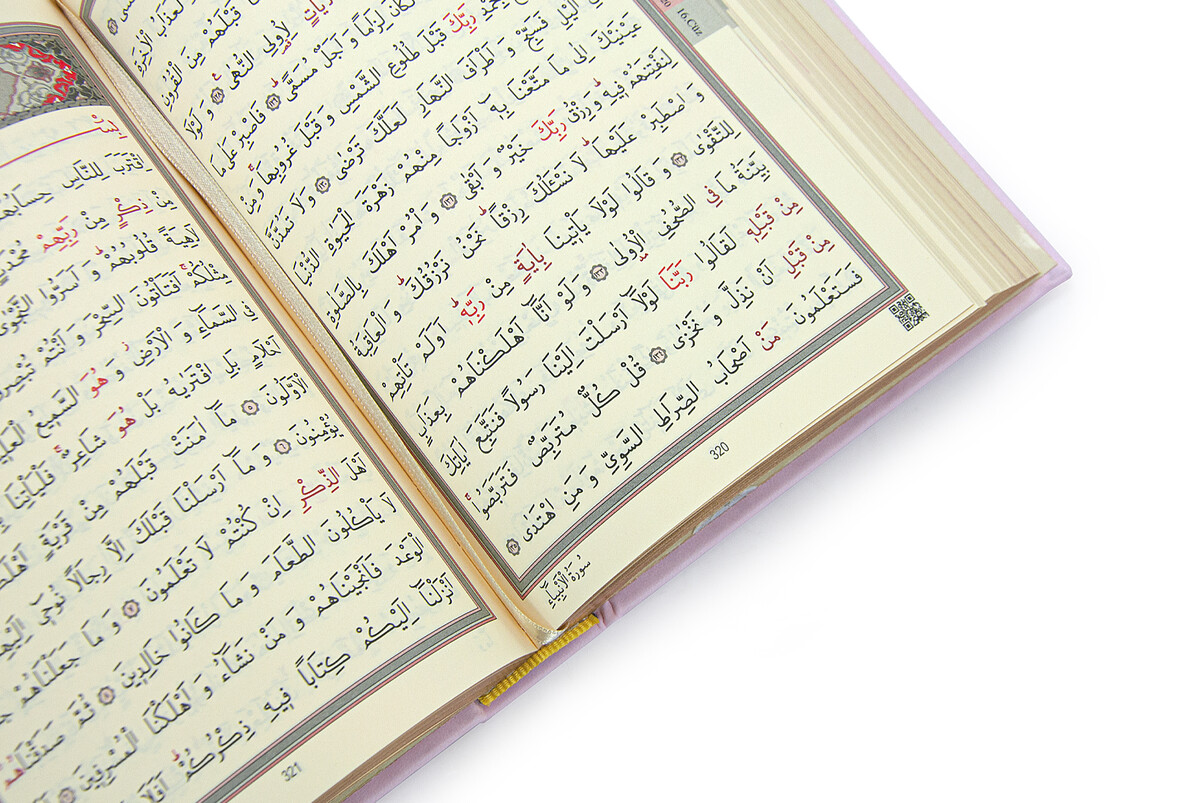 16.Cüz
لَعَذَابُ الْاٰخِرَةِ
قَبْلَهُمْ مِنَ الْقُرُونِ
لِاُولِي النُّهٰى ﴿١٢٨﴾ وَ لَوْلَا
لَكَانَ لِزَامًا وَ اَجَلٌ مُسَمًّى ﴿١٢٩﴾ فَاصْبِرْ عَلٰى مَا
رَبِّكَ قَبْلَ طُلُوعِ الشَّمْسِ وَ قَبْلَ غُرُوبِهَا وَ مِنْ
الَّيْلِ فَسَبِّحْ وَ اَطْرَافَ النَّهَارِ لَعَلَّكَ تَرْضٰى ﴿١٣٠﴾ وَ لَا تَمُدَّنَّ
عَيْنَيْكَ اِلٰى مَا مَتَّعْنَا بِهٖٓ اَزْوَاجًا مِنْهُمْ زَهْرَةَ الْحَيٰوةِ الدُّنْيَا
لِنَفْتِنَهُمْ فِيهِ وَ رِزْقُ رَبِّكَ خَيْرٌ وَ اَبْقٰى ﴿١٣١﴾ وَ أْمُرْ اَهْلَكَ بِالصَّلٰوةِ
وَ اصْطَبِرْ عَلَيْهَا لَا نَسْـَٔلُكَ رِزْقًا نَحْنُ نَرْزُقُكَ وَ الْعَاقِبَةُ
لِلتَّقْوٰى ﴿١٣٢﴾ وَ قَالُوا لَوْلَا يَأْتِينَا بِاٰيَةٍ مِنْ رَبِّهٖ اَوَلَمْ تَأْتِهِمْ
بَيِّنَةُ مَا فِي الصُّحُفِ الْاُولٰى ﴿١٣٣﴾ وَ لَوْ اَنَّٓا اَهْلَكْنَاهُمْ بِعَذَابٍ
مِنْ قَبْلِهٖ لَقَالُوا رَبَّنَا لَوْلَٓا اَرْسَلْتَ اِلَيْنَا رَسُولًا فَنَتَّبِعَ اٰيَاتِكَ
مِنْ قَبْلِ اَنْ نَذِلَّ وَ نَخْزٰى ﴿١٣٤﴾ قُلْ كُلٌّ مُتَرَبِّصٌ فَتَرَبَّصُوا
فَسَتَعْلَمُونَ مَنْ اَصْحَابُ الصِّرَاطِ السَّوِيِّ وَ مَنِ اهْتَدٰى ﴿١٣٥﴾
320
سُورَةُ الْاَنْبِيَاءِ
اِقْتَرَبَ لِلنَّاسِ حِسَابُهُمْ
مِنْ ذِكْرٍ مِنْ رَبِّهِمْ
لَاهِيَةً قُلُوبُهُمْ وَ اَسَرُّوا النَّجْوَى
مِثْلُكُمْ اَفَتَأْتُونَ السِّحْرَ وَ اَنْتُمْ تُبْصِرُونَ
فِي السَّمَٓاءِ وَ الْاَرْضِ وَ هُوَ السَّمِيعُ الْعَلِيمُ
اَحْلَامٍ بَلِ افْتَرٰيهُ بَلْ هُوَ شَاعِرٌ فَلْيَأْتِنَا
الْاَوَّلُونَ ﴿٥﴾ مَٓا اٰمَنَتْ قَبْلَهُمْ مِنْ قَرْيَةٍ
يُؤْمِنُونَ ﴿٦﴾ وَ مَٓا اَرْسَلْنَا قَبْلَكَ اِلَّا رِجَالًا نُوحٓى اِلَيْهِمْ
اَهْلَ الذِّكْرِ اِنْ كُنْتُمْ لَا تَعْلَمُونَ ﴿٧﴾ وَ مَا جَعَلْنَاهُمْ
لَا يَأْكُلُونَ الطَّعَامَ وَ مَا كَانُوا خَالِدِينَ ﴿٨﴾ ثُمَّ صَدَقْنَاهُمُ
الْوَعْدَ فَاَنْجَيْنَاهُمْ وَ مَنْ نَشَٓاءُ وَ اَهْلَكْنَا الْمُسْرِفِينَ
اَنْزَلْنَٓا اِلَيْكُمْ كِتَابًا فِيهِ ذِكْرُكُمْ اَفَلَا
321